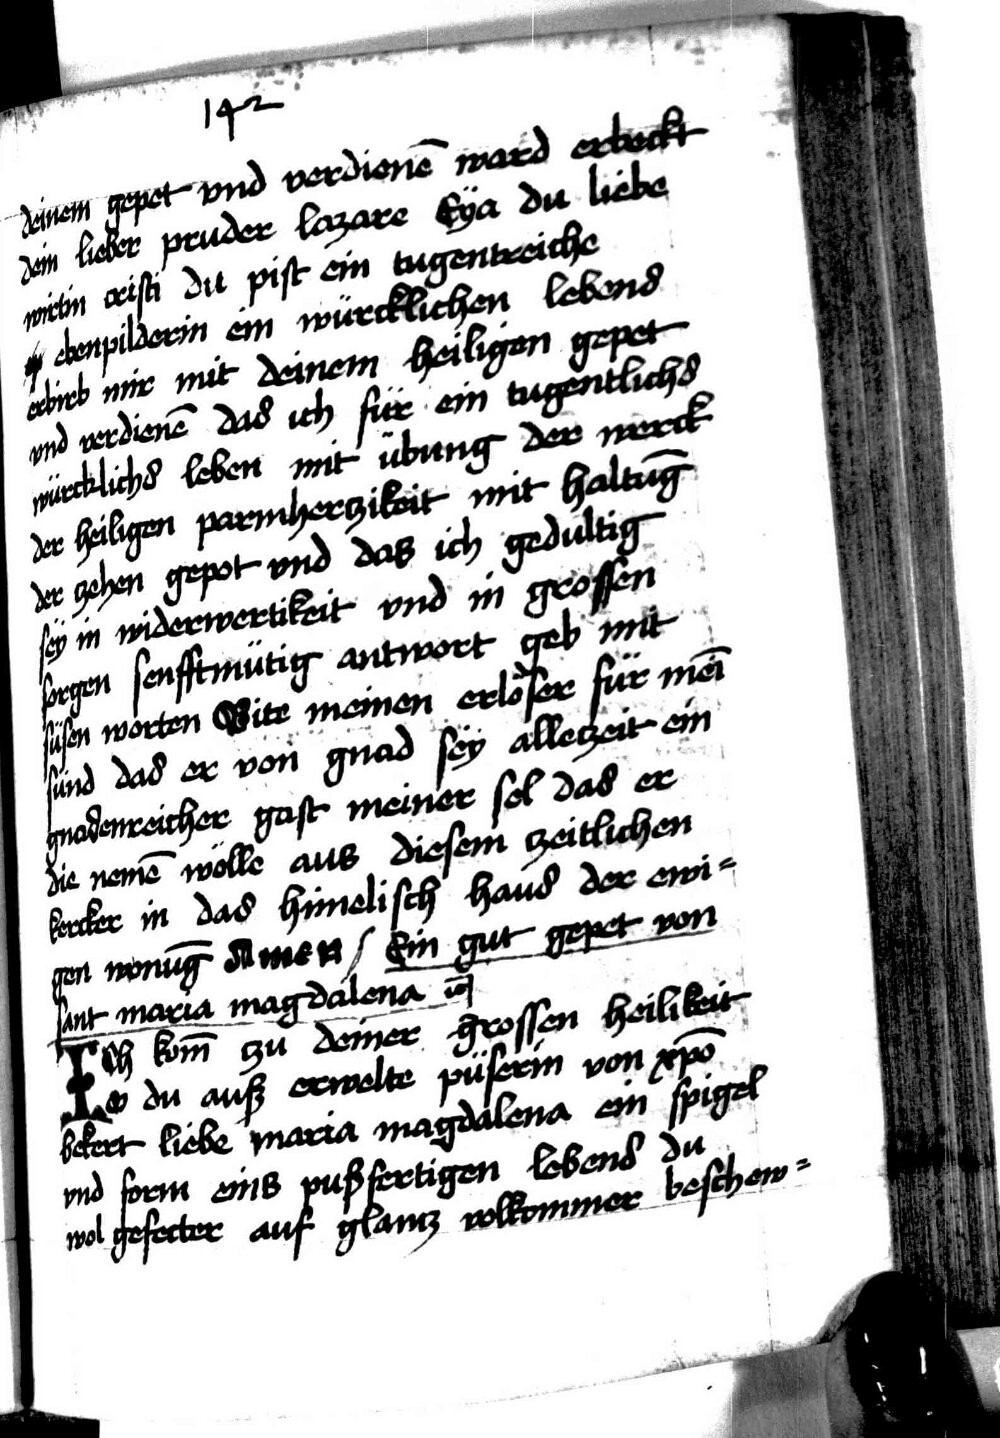 142
deinem gepet vnd verdienē ward erbeckt
dein lieber pruder lazare Eÿa du liebe
wirtin cristi du pist ein tugentreiche
ebenpilderin ein würcklichen lebens
erbirb mir mit deinem heiligen gepet
vnd verdienē das ich für ein tugentlichs
würcklichs leben mit übung der werck
der heiligen parmherczikeit mit haltūg
der zehen gepot vnd das ich gedultig
seÿ in widerwertikeit vnd in grossen
sorgen senfftmütig antwort geb mit
süsen worten Bite meinen erlöser für meī
sünd das er von gnad seÿ alleczeit ein
gnadenreicher gast meiner sel das er
die nemē wölle aus diesem zeitlichen
kercker in das himelisch haus der ewi=
gen wonūg Amen / Ein gut gepet von
sant maria magdalena
Ich kom̄ zu deiner grossen heilikeit
o du auß erwelte püserin von xp̄o
bekert liebe maria magdalena ein spigel
vnd form eins pußfertigen lebens du
wol gefecter auf glancz volkommer beschew=